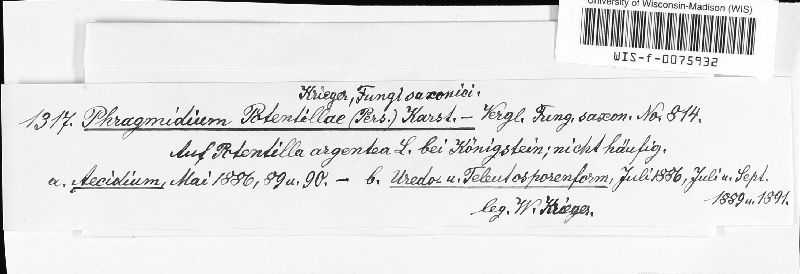 University of Wisconsin-Madison (WIS)
WIS-f-0075932
Krieger, Fungi saxonici.
1317. Phragmidium Potentillae (Pers.) Karst. – Vergl. Fung. saxon. No. 814.
Auf Potentilla argentea L. bei Königstein; nicht häufig.
a. Aecidium, Mai 1886, 89 u. 90. – b. Uredo- u. Teleutosporenform, Juli 1886, Juli u. Sept.
1889 u. 1891.
leg. W. Krieger.